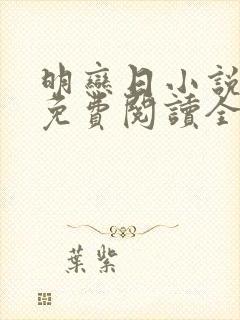 明戀日小說
免費閱讀全
葉紫